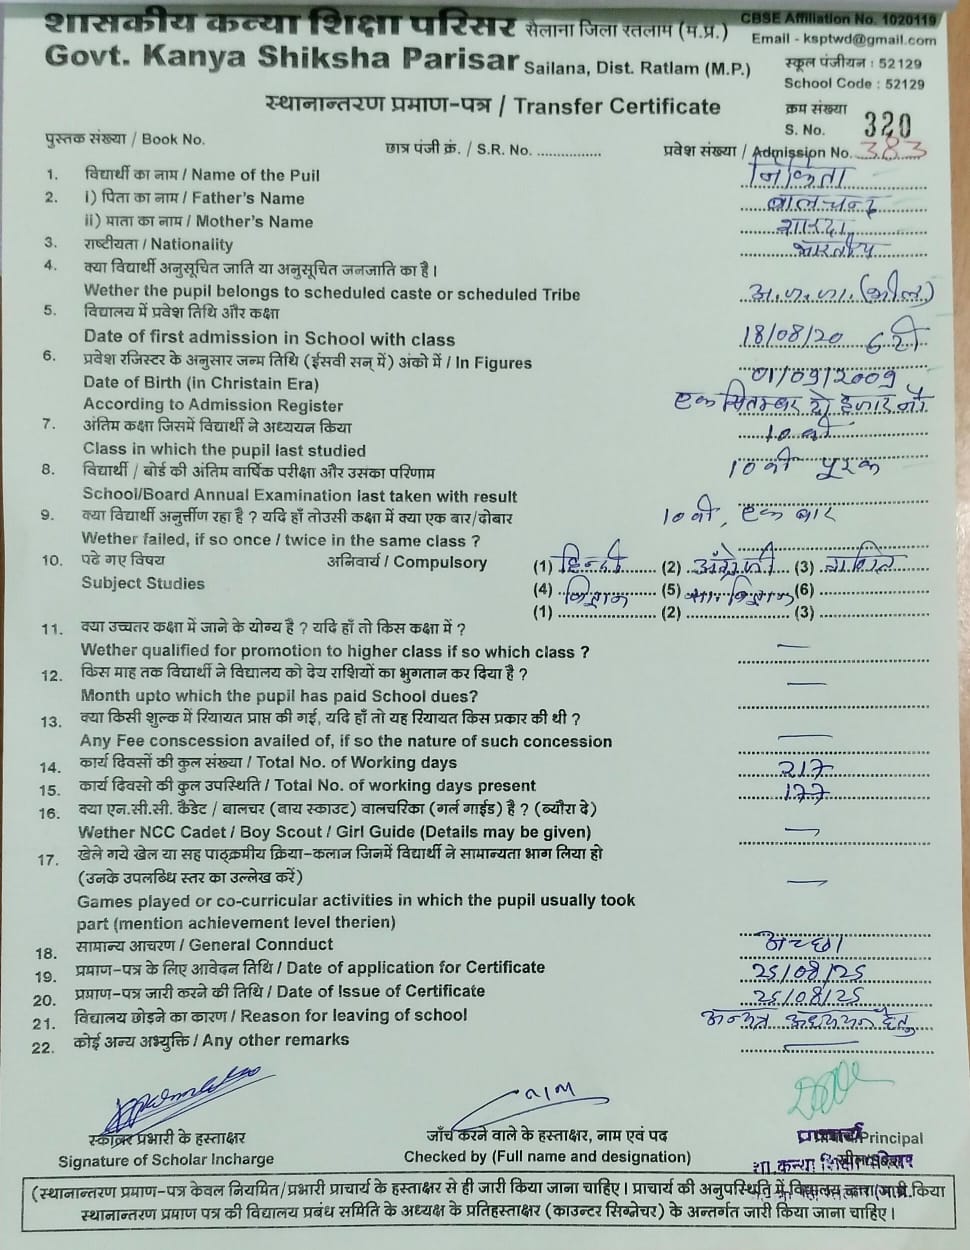 शासकीय कन्या शिक्षा परिसर सैलाना जिला रतलाम (म.प्र.)
CBSE Affiliation No. 1020119
Email - ksptwd@gmail.com
Govt. Kanya Shiksha Parisar Sailana, Dist. Ratlam (M.P.)
स्कूल पंजीयन : 52129
School Code : 52129
स्थानान्तरण प्रमाण-पत्र / Transfer Certificate
क्रम संख्या
S. No. 320
पुस्तक संख्या / Book No. छात्र पंजी क्रं. / S.R. No. ............... प्रवेश संख्या / Admission No. 383
1. विद्यार्थी का नाम / Name of the Puil निकिता
2. i) पिता का नाम / Father's Name बालचन्द्र
ii) माता का नाम / Mother's Name शारदा
3. राष्टीयता / Nationality भारतीय
4. क्या विद्यार्थी अनुसूचित जाति या अनुसूचित जनजाति का है।
Wether the pupil belongs to scheduled caste or scheduled Tribe अ.ज.जा. (भील)
5. विद्यालय में प्रवेश तिथि और कक्षा
Date of first admission in School with class 18/08/20 6 टी
6. प्रवेश रजिस्टर के अनुसार जन्म तिथि (ईसवी सन् में) अंको में / In Figures
Date of Birth (in Christain Era) 01/09/2009
According to Admission Register एक सितम्बर दो हजार नौ
7. अंतिम कक्षा जिसमें विद्यार्थी ने अध्ययन किया
Class in which the pupil last studied 10 वी
8. विद्यार्थी / बोर्ड की अंतिम वार्षिक परीक्षा और उसका परिणाम
School/Board Annual Examination last taken with result 10 वी पूरक
9. क्या विद्यार्थी अनुर्त्तीण रहा है ? यदि हाँ तोउसी कक्षा में क्या एक बार/दोबार
Wether failed, if so once / twice in the same class ? 10 वी, एक बार
10. पढे गए विषय अनिवार्य / Compulsory (1) हिन्दी (2) अंग्रेजी (3) गणित
Subject Studies (4) विज्ञान (5) सा. विज्ञान (6)
(1) (2) (3)
11. क्या उच्चतर कक्षा में जाने के योग्य है ? यदि हाँ तो किस कक्षा में ?
Wether qualified for promotion to higher class if so which class ? —
12. किस माह तक विद्यार्थी ने विद्यालय को देय राशियों का भुगतान कर दिया है ?
Month upto which the pupil has paid School dues? —
13. क्या किसी शुल्क में रियायत प्राप्त की गई, यदि हाँ तो यह रियायत किस प्रकार की थी ?
Any Fee conscession availed of, if so the nature of such concession —
14. कार्य दिवसों की कुल संख्या / Total No. of Working days 217
15. कार्य दिवसो की कुल उपस्थिति / Total No. of working days present 177
16. क्या एन.सी.सी. कैडेट / बालचर (बाय स्काउट) वालचरिका (गर्ल गाईड) है ? (ब्यौरा दे)
Wether NCC Cadet / Boy Scout / Girl Guide (Details may be given) —
17. खेले गये खेल या सह पाठ्क्रमीय क्रिया-कलान जिनमें विद्यार्थी ने सामान्यता भाग लिया हो
(उनके उपलब्धि स्तर का उल्लेख करें)
Games played or co-curricular activities in which the pupil usually took —
part (mention achievement level therien)
18. सामान्य आचरण / General Connduct अच्छा
19. प्रमाण-पत्र के लिए आवेदन तिथि / Date of application for Certificate 25/08/25
20. प्रमाण-पत्र जारी करने की तिथि / Date of Issue of Certificate 25/08/25
21. विद्यालय छोड़ने का कारण / Reason for leaving of school अन्यत्र अध्ययन हेतु
22. कोई अन्य अभ्युक्ति / Any other remarks —
स्कॉलर प्रभारी के हस्ताक्षर
Signature of Scholar Incharge
जाँच करने वाले के हस्ताक्षर, नाम एवं पद
Checked by (Full name and designation)
प्राचार्य Principal
शा. कन्या शिक्षा परिसर
(स्थानान्तरण प्रमाण-पत्र केवल नियमित/प्रभारी प्राचार्य के हस्ताक्षर से ही जारी किया जाना चाहिए। प्राचार्य की अनुपस्थिति में विद्यालय द्वारा जारी किया
स्थानान्तरण प्रमाण पत्र की विद्यालय प्रबंध समिति के अध्यक्ष के प्रतिहस्ताक्षर (काउन्टर सिग्नेचर) के अन्तर्गत जारी किया जाना चाहिए।